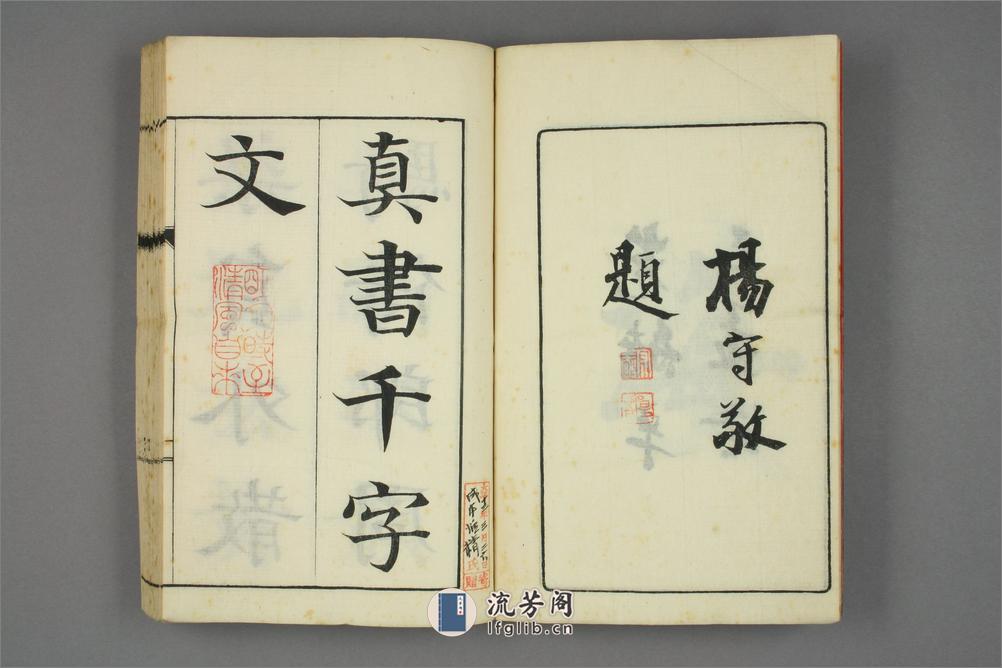 楊守敬
題
真書千字
文
流芳阁
lfglib.cn